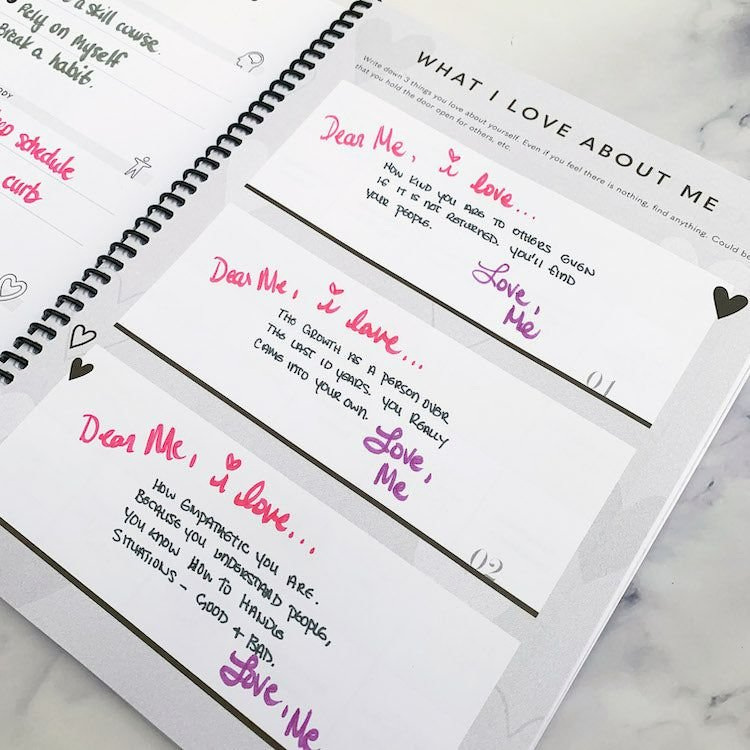 a skill course.
Rely on myself
Break a habit.
schedule
curb
WHAT I LOVE ABOUT ME
Write down 3 things you love about yourself. Even if you feel there is nothing, find anything. Could be
that you hold the door open for others, etc.
Dear Me, i love...
HOW KIND YOU ARE TO OTHERS EVEN
IF IT IS NOT RETURNED. YOU'LL FIND
YOUR PEOPLE.
Love,
Me
01
Dear Me, i love...
THE GROWTH AS A PERSON OVER
THE LAST 10 YEARS. YOU REALLY
CAME INTO YOUR OWN.
Love,
Me
02
Dear Me, i love...
HOW EMPATHETIC YOU ARE.
BECAUSE YOU UNDERSTAND PEOPLE,
YOU KNOW HOW TO HANDLE
SITUATIONS - GOOD + BAD.
Love, Me